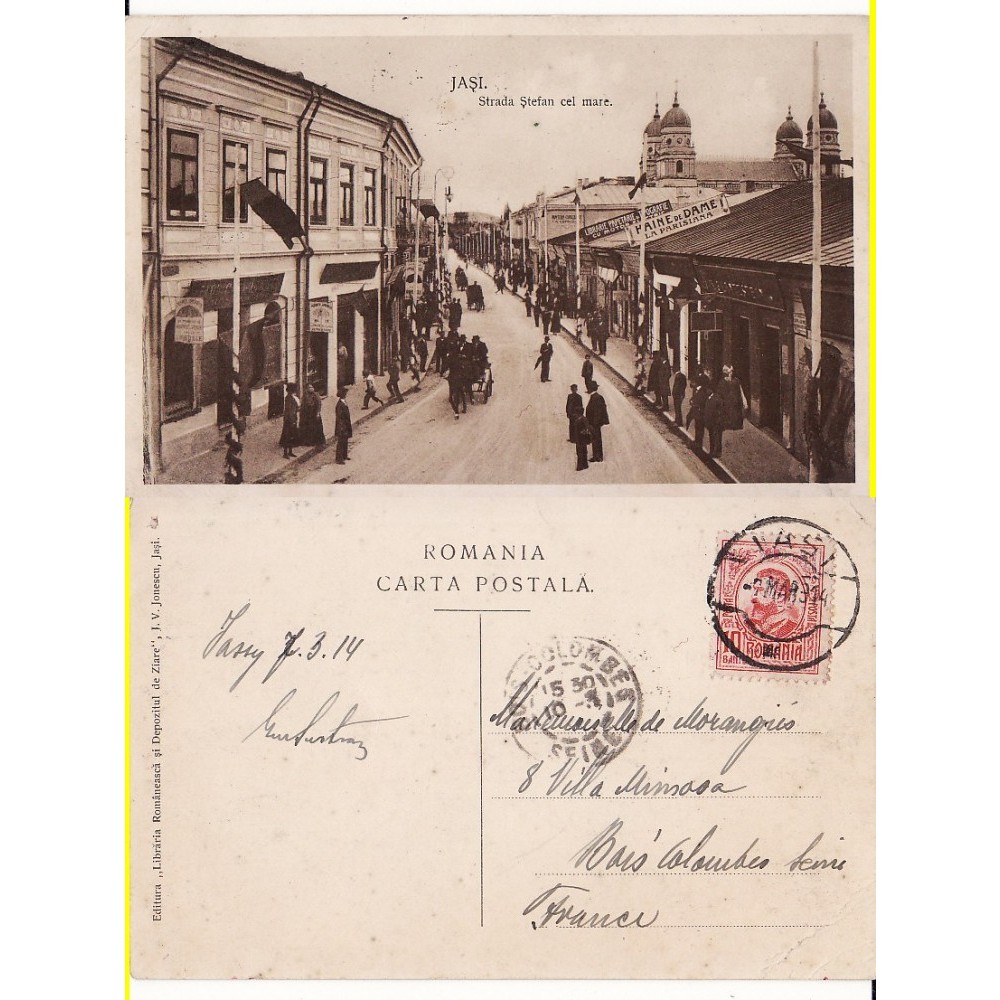 JAȘI.
Strada Ștefan cel mare.
LIBRARIE PAPETARIE
CU MOTOR
HAINE DE DAME
LA PARISIANA
ROMANIA
CARTA POSTALĂ.
Editura „Librăria Românească și Depozitul de Ziare", J. V. Jonescu, Jași.
Jassy 7.3.14
IASI
MAR 914
10
BANI
ROMANIA
COLOMBES
5 30
10 - 3
SEINE
Mademoiselle de Morangiés
8 Villa Mimosa
Bois Colombes Seine
France